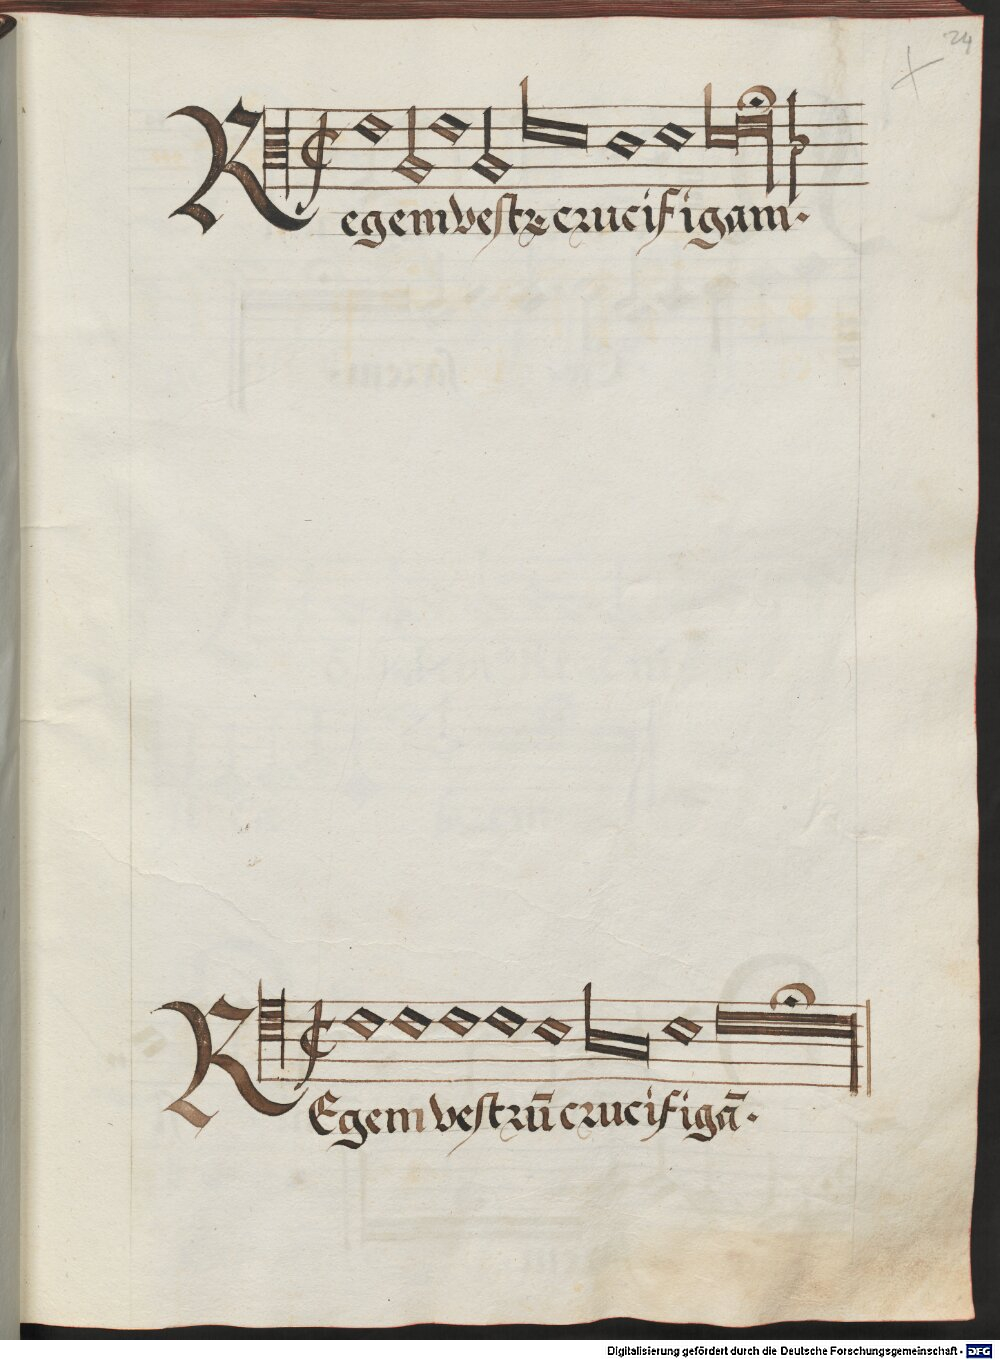 24
Regem vestrꝝ crucifigam.
REgem vestrū crucifigā.
Digitalisierung gefördert durch die Deutsche Forschungsgemeinschaft - DFG